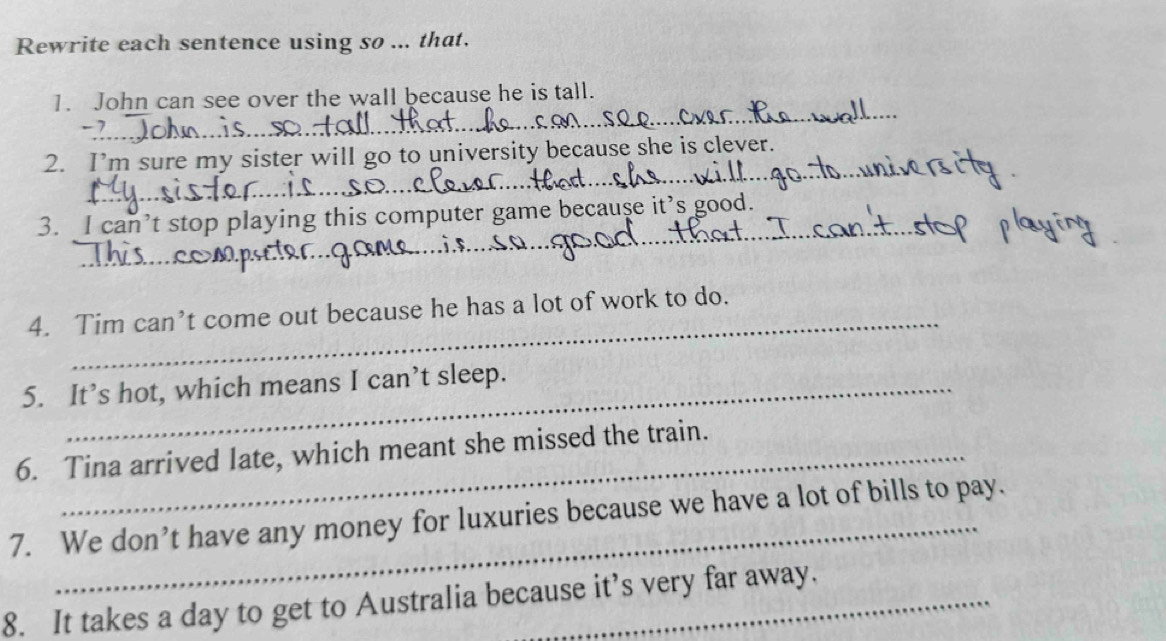 Rewrite each sentence using so ... that.
1. John can see over the wall because he is tall.
→ John is so tall that he can see over the wall
2. I'm sure my sister will go to university because she is clever.
My sister is so clever that she will go to university.
3. I can't stop playing this computer game because it's good.
This computer game is so good that I can't stop playing
4. Tim can't come out because he has a lot of work to do.
5. It's hot, which means I can't sleep.
6. Tina arrived late, which meant she missed the train.
7. We don't have any money for luxuries because we have a lot of bills to pay.
8. It takes a day to get to Australia because it's very far away.